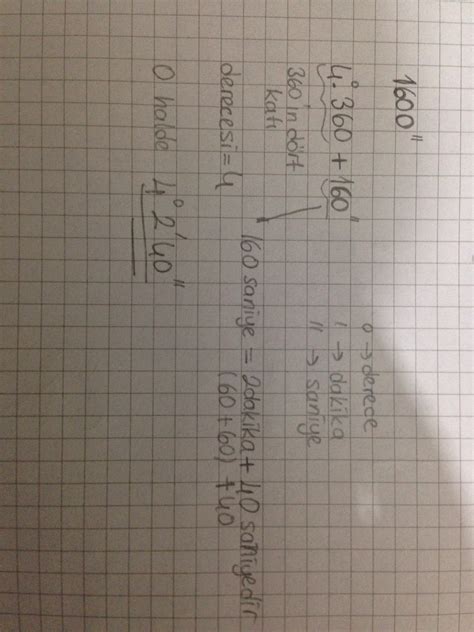 1600"
4°.360 + 160"
360'ın dört
katı
0 → derece
ı → dakika
ıı → saniye
160 saniye = 2dakika + 40 saniyedir
(60+60) + 40
derecesi = 4
O halde 4° 2' 40"